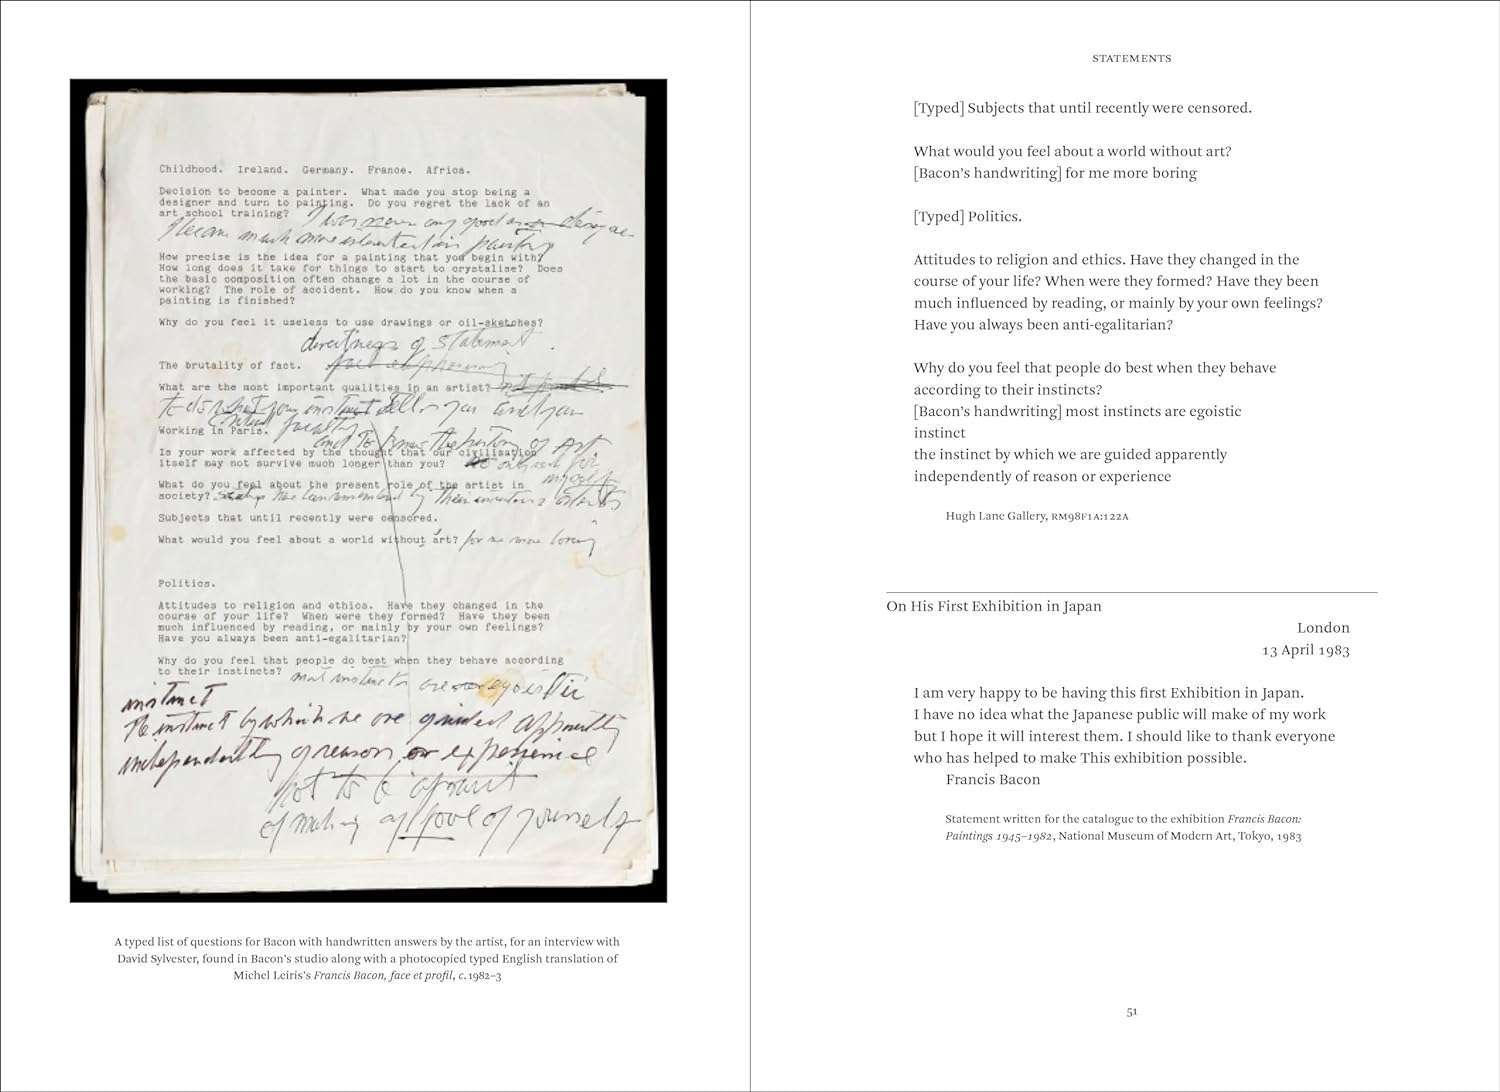 Childhood. Ireland. Germany. France. Africa.
Decision to become a painter. What made you stop being a
designer and turn to painting. Do you regret the lack of an
art school training? I was never any good as a
I became much more interested in painting
How precise is the idea for a painting that you begin with?
How long does it take for things to start to crystalise? Does
the basic composition often change a lot in the course of
working? The role of accident. How do you know when a
painting is finished?
Why do you feel it useless to use drawings or oil-sketches?
directness of statement
The brutality of fact.
What are the most important qualities in an artist?
your instinct tells you and your
critical faculty
Working in Paris.
and to know the history of Art
Is your work affected by the thought that our civilisation
itself may not survive much longer than you? only for
myself
What do you feel about the present role of the artist in
society? by their artists
Subjects that until recently were censored.
What would you feel about a world without art? for me more boring
Politics.
Attitudes to religion and ethics. Have they changed in the
course of your life? When were they formed? Have they been
much influenced by reading, or mainly by your own feelings?
Have you always been anti-egalitarian?
Why do you feel that people do best when they behave according
to their instincts? most instincts are egoistic
instinct
the instinct by which we are guided apparently
independently of reason or experience
not to be afraid
of making a fool of yourself
A typed list of questions for Bacon with handwritten answers by the artist, for an interview with
David Sylvester, found in Bacon's studio along with a photocopied typed English translation of
Michel Leiris's Francis Bacon, face et profil, c. 1982–3
STATEMENTS
[Typed] Subjects that until recently were censored.
What would you feel about a world without art?
[Bacon's handwriting] for me more boring
[Typed] Politics.
Attitudes to religion and ethics. Have they changed in the
course of your life? When were they formed? Have they been
much influenced by reading, or mainly by your own feelings?
Have you always been anti-egalitarian?
Why do you feel that people do best when they behave
according to their instincts?
[Bacon's handwriting] most instincts are egoistic
instinct
the instinct by which we are guided apparently
independently of reason or experience
Hugh Lane Gallery, RM98F1A:122A
On His First Exhibition in Japan
London
13 April 1983
I am very happy to be having this first Exhibition in Japan.
I have no idea what the Japanese public will make of my work
but I hope it will interest them. I should like to thank everyone
who has helped to make This exhibition possible.
Francis Bacon
Statement written for the catalogue to the exhibition Francis Bacon:
Paintings 1945–1982, National Museum of Modern Art, Tokyo, 1983
51